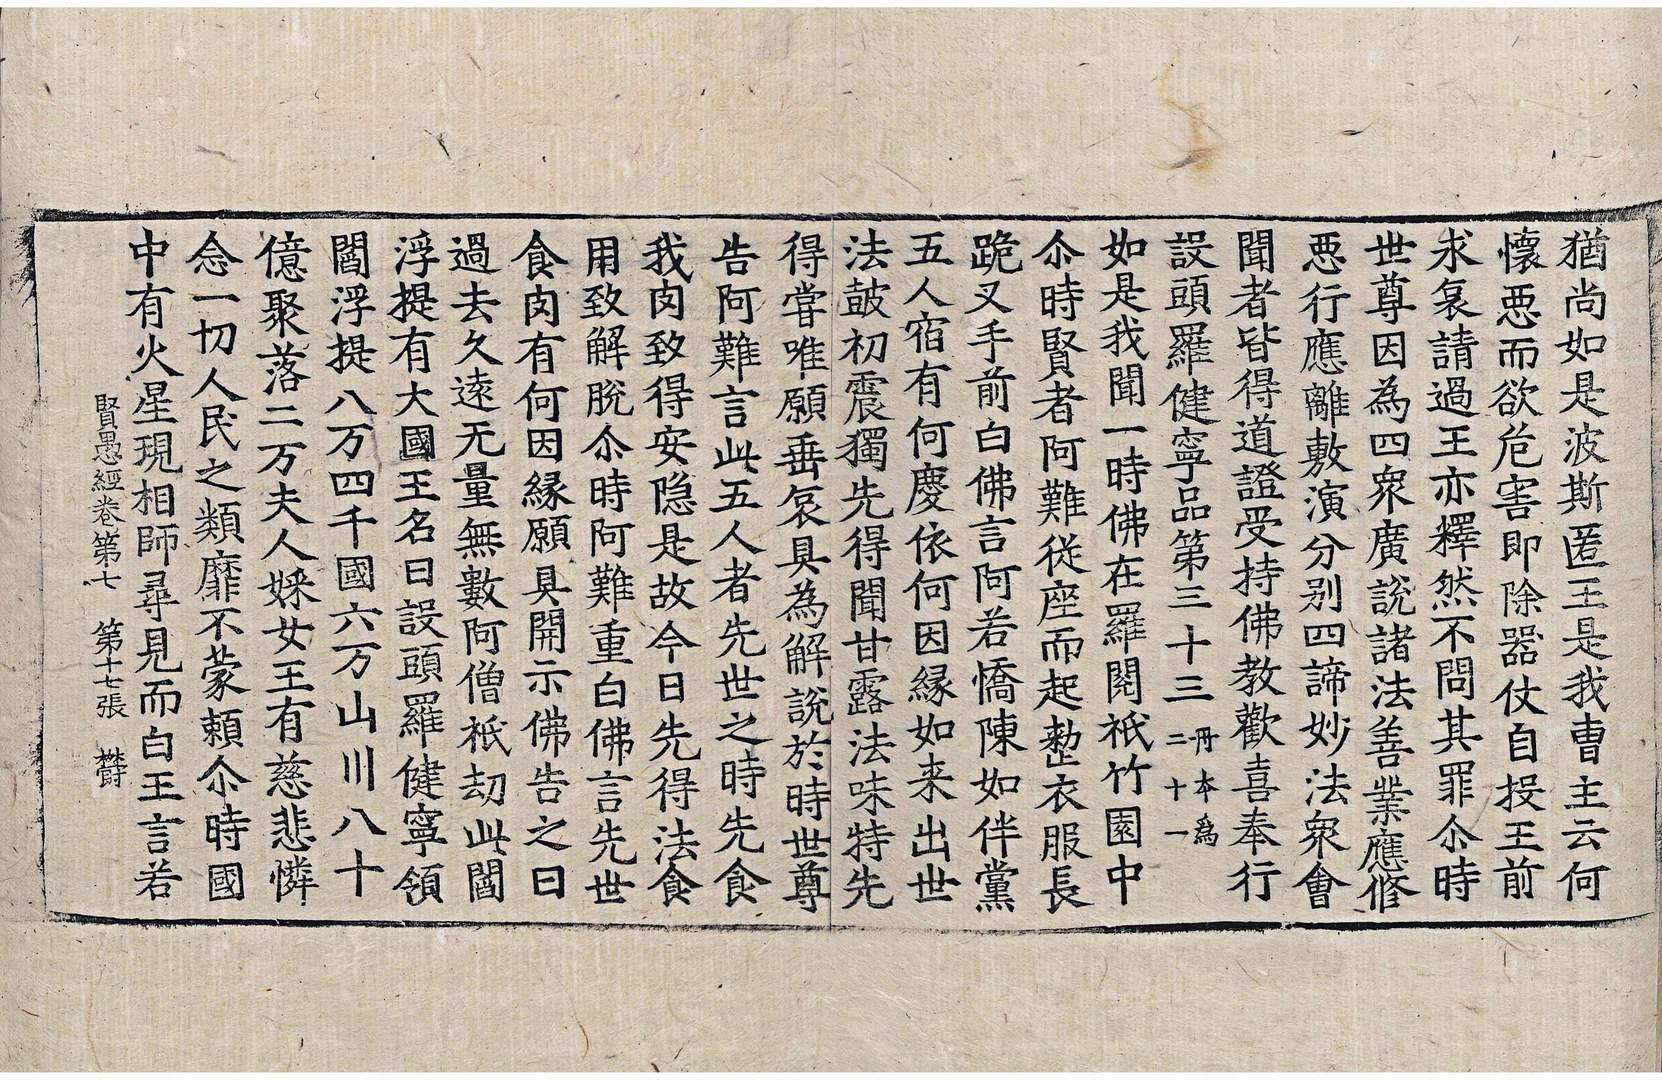 猶尚如是波斯匿王是我曹主云何
懷惡而欲危害即除器仗自投王前
求哀請過王亦釋然不問其罪尒時
世尊因為四眾廣說諸法善業應修
惡行應離敷演分別四諦妙法眾會
聞者皆得道證受持佛教歡喜奉行
設頭羅健寧品第三十三 丹本為二十一
如是我聞一時佛在羅閱祇竹園中
尒時賢者阿難從座而起整衣服長
跪叉手前白佛言阿若憍陳如伴黨
五人宿有何慶依何因緣如来出世
法鼓初震獨先得聞甘露法味特先
得甞唯願垂哀具為解說於時世尊
告阿難言此五人者先世之時先食
我肉致得安隐是故今日先得法食
用致解脫尒時阿難重白佛言先世
食肉有何因緣願具開示佛告之曰
過去久遠无量無數阿僧祇劫此閻
浮提有大國王名曰設頭羅健寧領
閻浮提八万四千國六万山川八十
億聚落二万夫人婇女王有慈悲憐
念一切人民之類靡不蒙賴尒時國
中有火星現相師尋見而白王言若
賢愚經卷第七 第十七張 欝